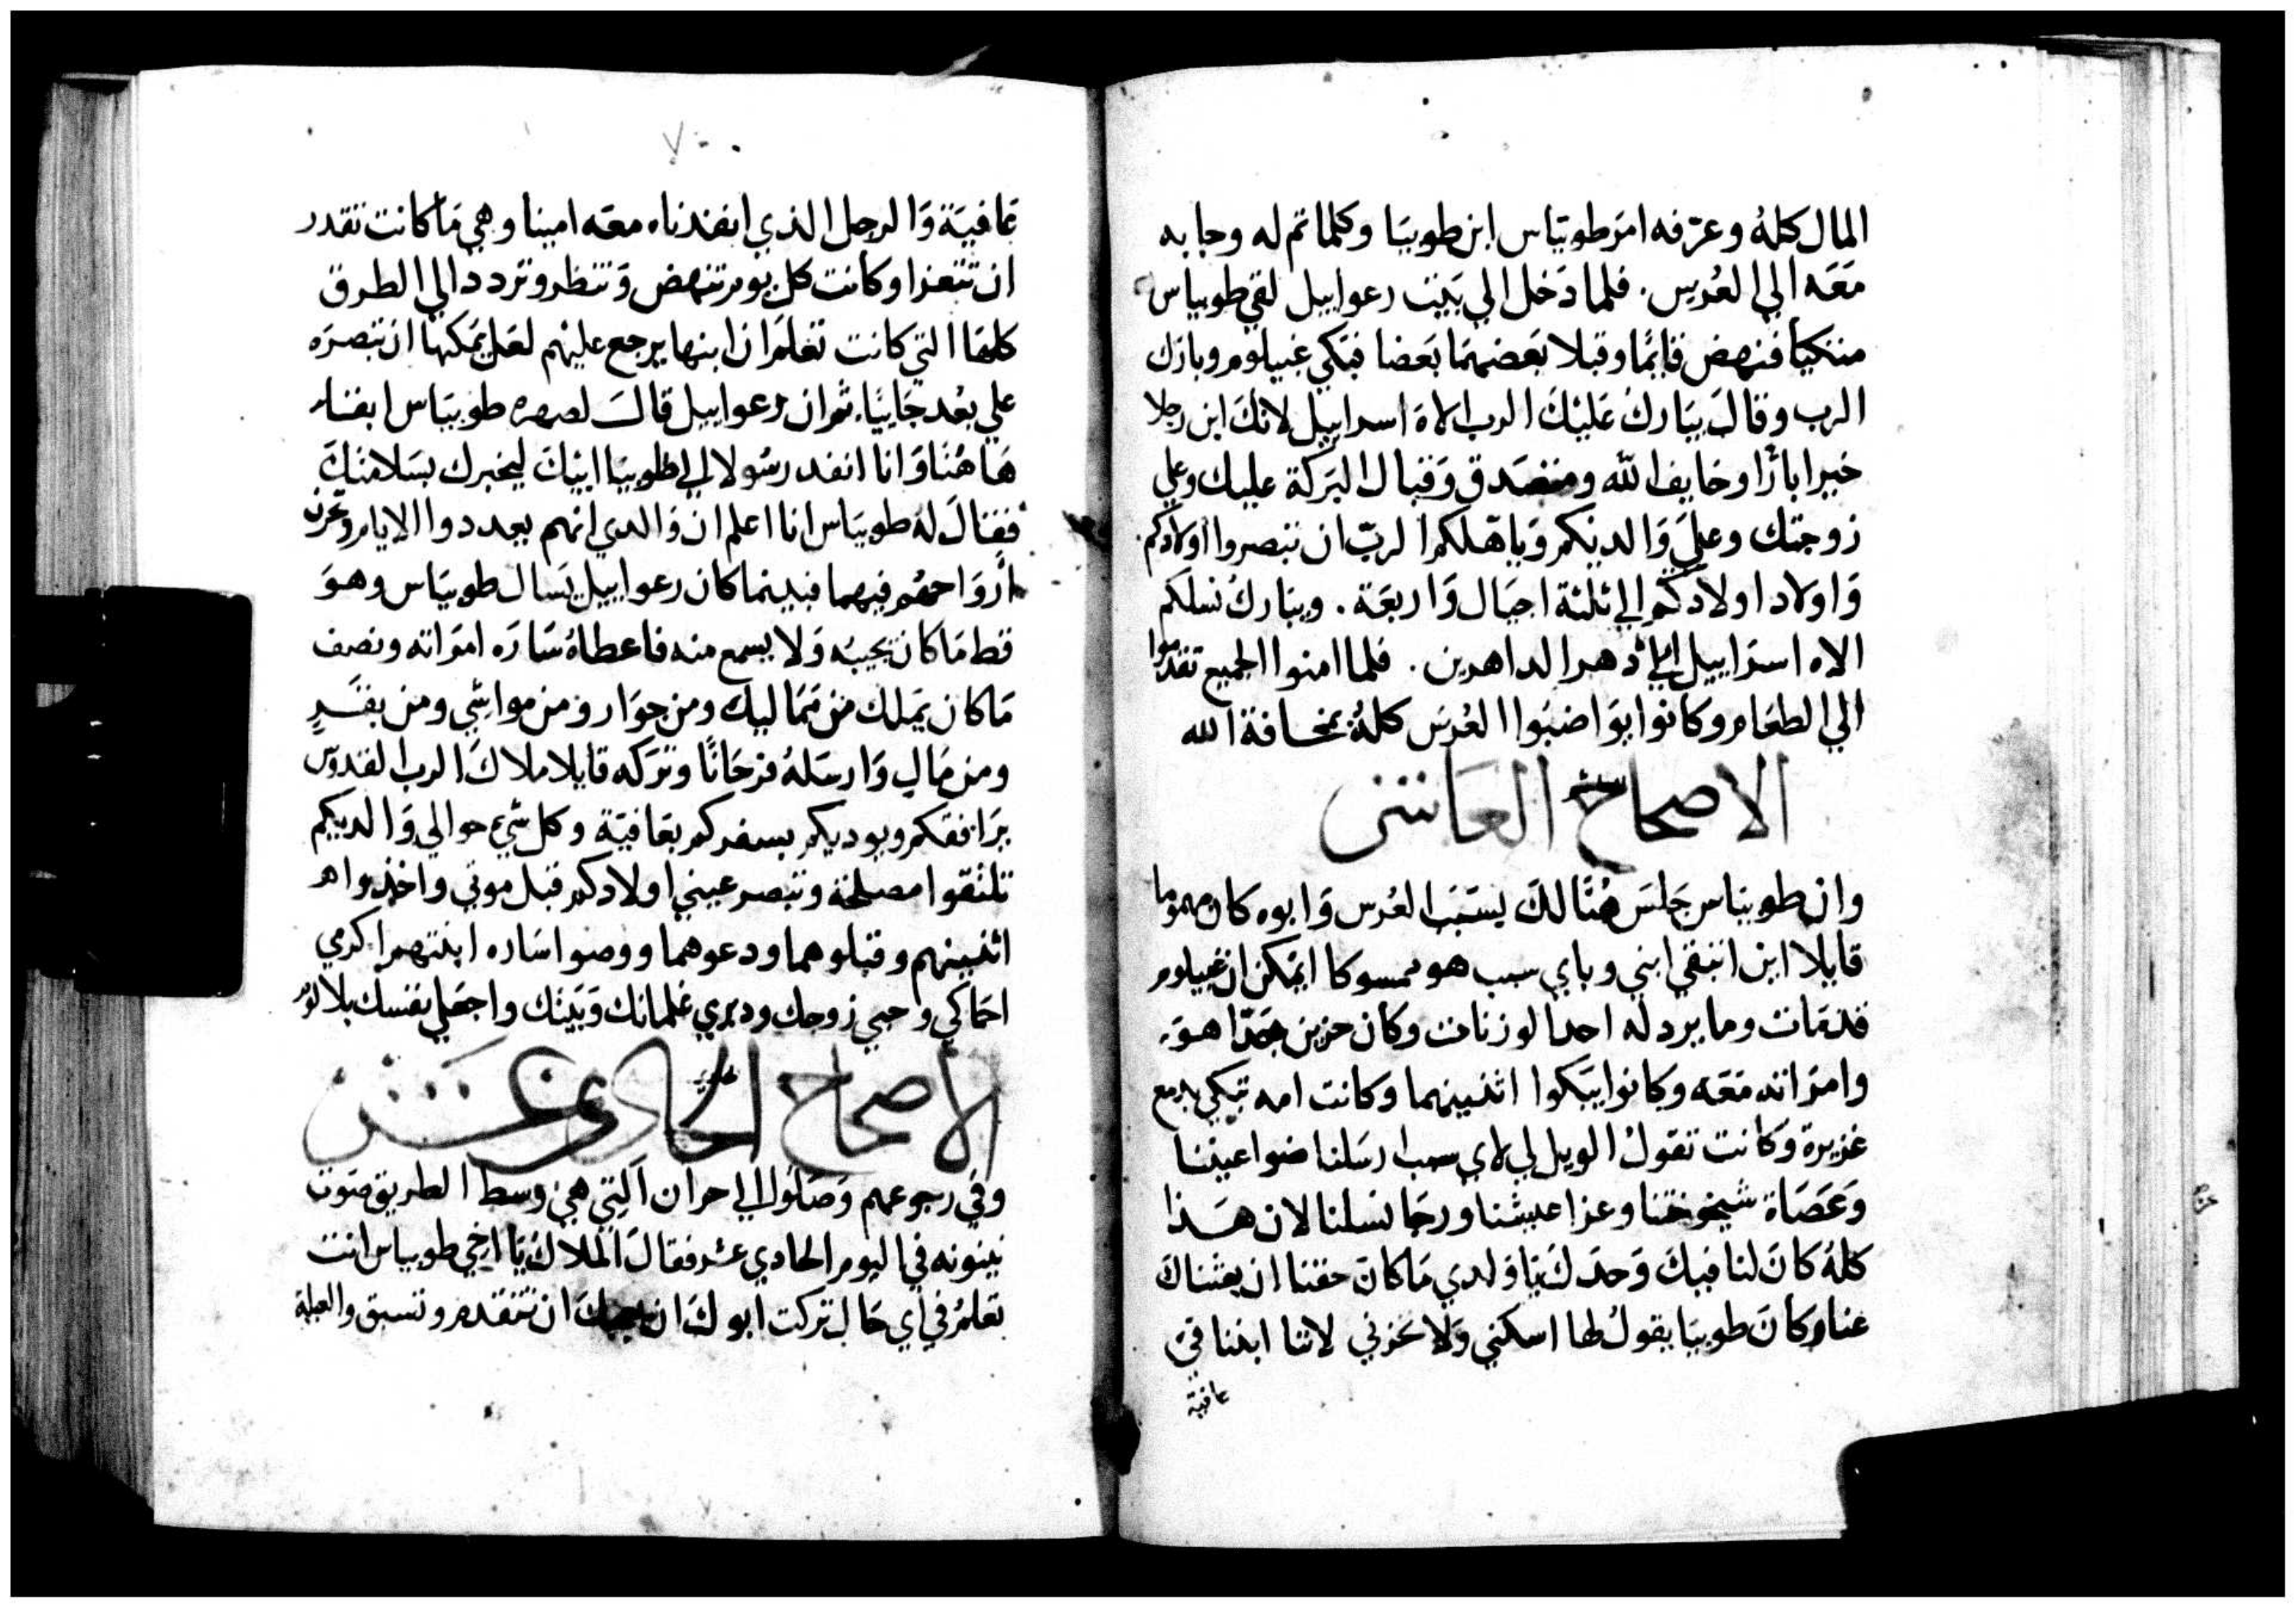 المال كلهُ وعرّفه امرَ طوبيّاس ابن طوبيَا وكلما تم له وجابه
مَعَه الي العُرس. فلما دَخل الي بَيت رعواييل لقي طوبياس
متكيًا فنهض قايمًا وقبلا بَعضهمَا بَعضا فبَكي غبيلوم وبارك
الرب وقالَ يبَارك عَليْكَ الرب الاهَ اسراييل لانكَ ابن رجلا
خيرا بارًا وخايف الله ومتصَدق وَقبال البَركة عليك وعلي
زوجتك وعلي وَالديكم وَياهّلكم الربّ ان تبصروا اولادكم
وَاولاد اولادكم الي ثلثة اجيَال وَاربعَة. ويبَارك نسلكم
الاه اسرَاييل الي دهر الداهرين. فلما امنوا الجميع تقدموا
الي الطعَام وكانوا يوَاضبَوا العُرس كلهُ بمخافة الله
الاصحاح العَاشر
وان طوبيَاس جَلسَ هُنَالكَ بسَبب العُرس وَابوه كان مهموما
قايلا اين انبقي ابني وباي سبب هو ممسوكا ايمَكن ان غبيلوم
قد مَات وما يرد له احدا لوزنات وكان حزين جَدّا هوَ
وامرَاته مَعَه وكانوا يبَكوا اثنينهما وكانت امه تبَكي بدمع
غزيرة وَكانت تقولُ الويل لي لاي سبب ارسَلنا ضوا عينَنا
وَعَصَاة شيخوختنا وعزا عيشنا ورجَا نسلنا لان هَذا
كلهُ كانَ لنا فيكَ وَحدَكَ يَا وَلدي مَا كانَ حقنا ان بعثناكَ
عنا وَكانَ طوبيَا يقولُ لها اسكتي وَلا تحزني لاننا ابننا في
عافية
بعَافيَة وَالرجل الذي انفدناه معَه امينا وهي مَا كانت تقدر
ان تتعزا وكانت كل يوم تنهض وَتنظر وتردد الي الطرق
كلهَا التي كانت تعلمَ ان ابنها يرجع عليهم لعَل يمَكنها ان تبصرَه
علي بعُد جَاييًا. ثم ان رعواييل قالَ لصهره طوبيَاس ابقَا
هَا هُنَا وَانا انفد رسُولا الي طوبيَا ابيْكَ ليخبرك بسَلامتكَ
فقالَ لهُ طوبيَاس انا اعلم ان وَالدي انهم يعددوا الايام وتحزن
اروَاحهُم فيهما فبينما كان رعواييل يسَال طوبيَاس وهوَ
قط مَا كان يجيبَه وَلا يسمع منه فاعطاهُ سَارَه امرَاته ونصف
مَا كان يمَلك من ممَاليك ومن جوَار ومن مواشي ومن بقَرٍ
ومن مَال وَارسَلهُ فرحَانًا وتَركه قايلا ملاكَ الرب القدوس
يرَافقكم ويوديكم بسفركم بعَافيَة وكل شي حوالي وَالديكم
تلتقوا مصلحة وتبصر عيني اولادكم قبل موتي واخذوا
اثنينهم وقبَلوهما ودعوهما ووصوا سَاره ابنتهم اكرمي
احمَاكي وحبي زوجك ودبري غلمانك وَبَيتك واجعَلي نفسك بلا لوم
الاصحاح الحادي عَشَر
وفي رجوعهم وَصَلوا الي حران التي هي وسط الطريق صَوب
نينونه في اليوم الحادي عشر فقالَ الملاك يَا اخي طوبياس انت
تعَلمُ في اي حَال تركت ابوكَ ان يعجبكَ ان نتقدم ونسبق والعيلة